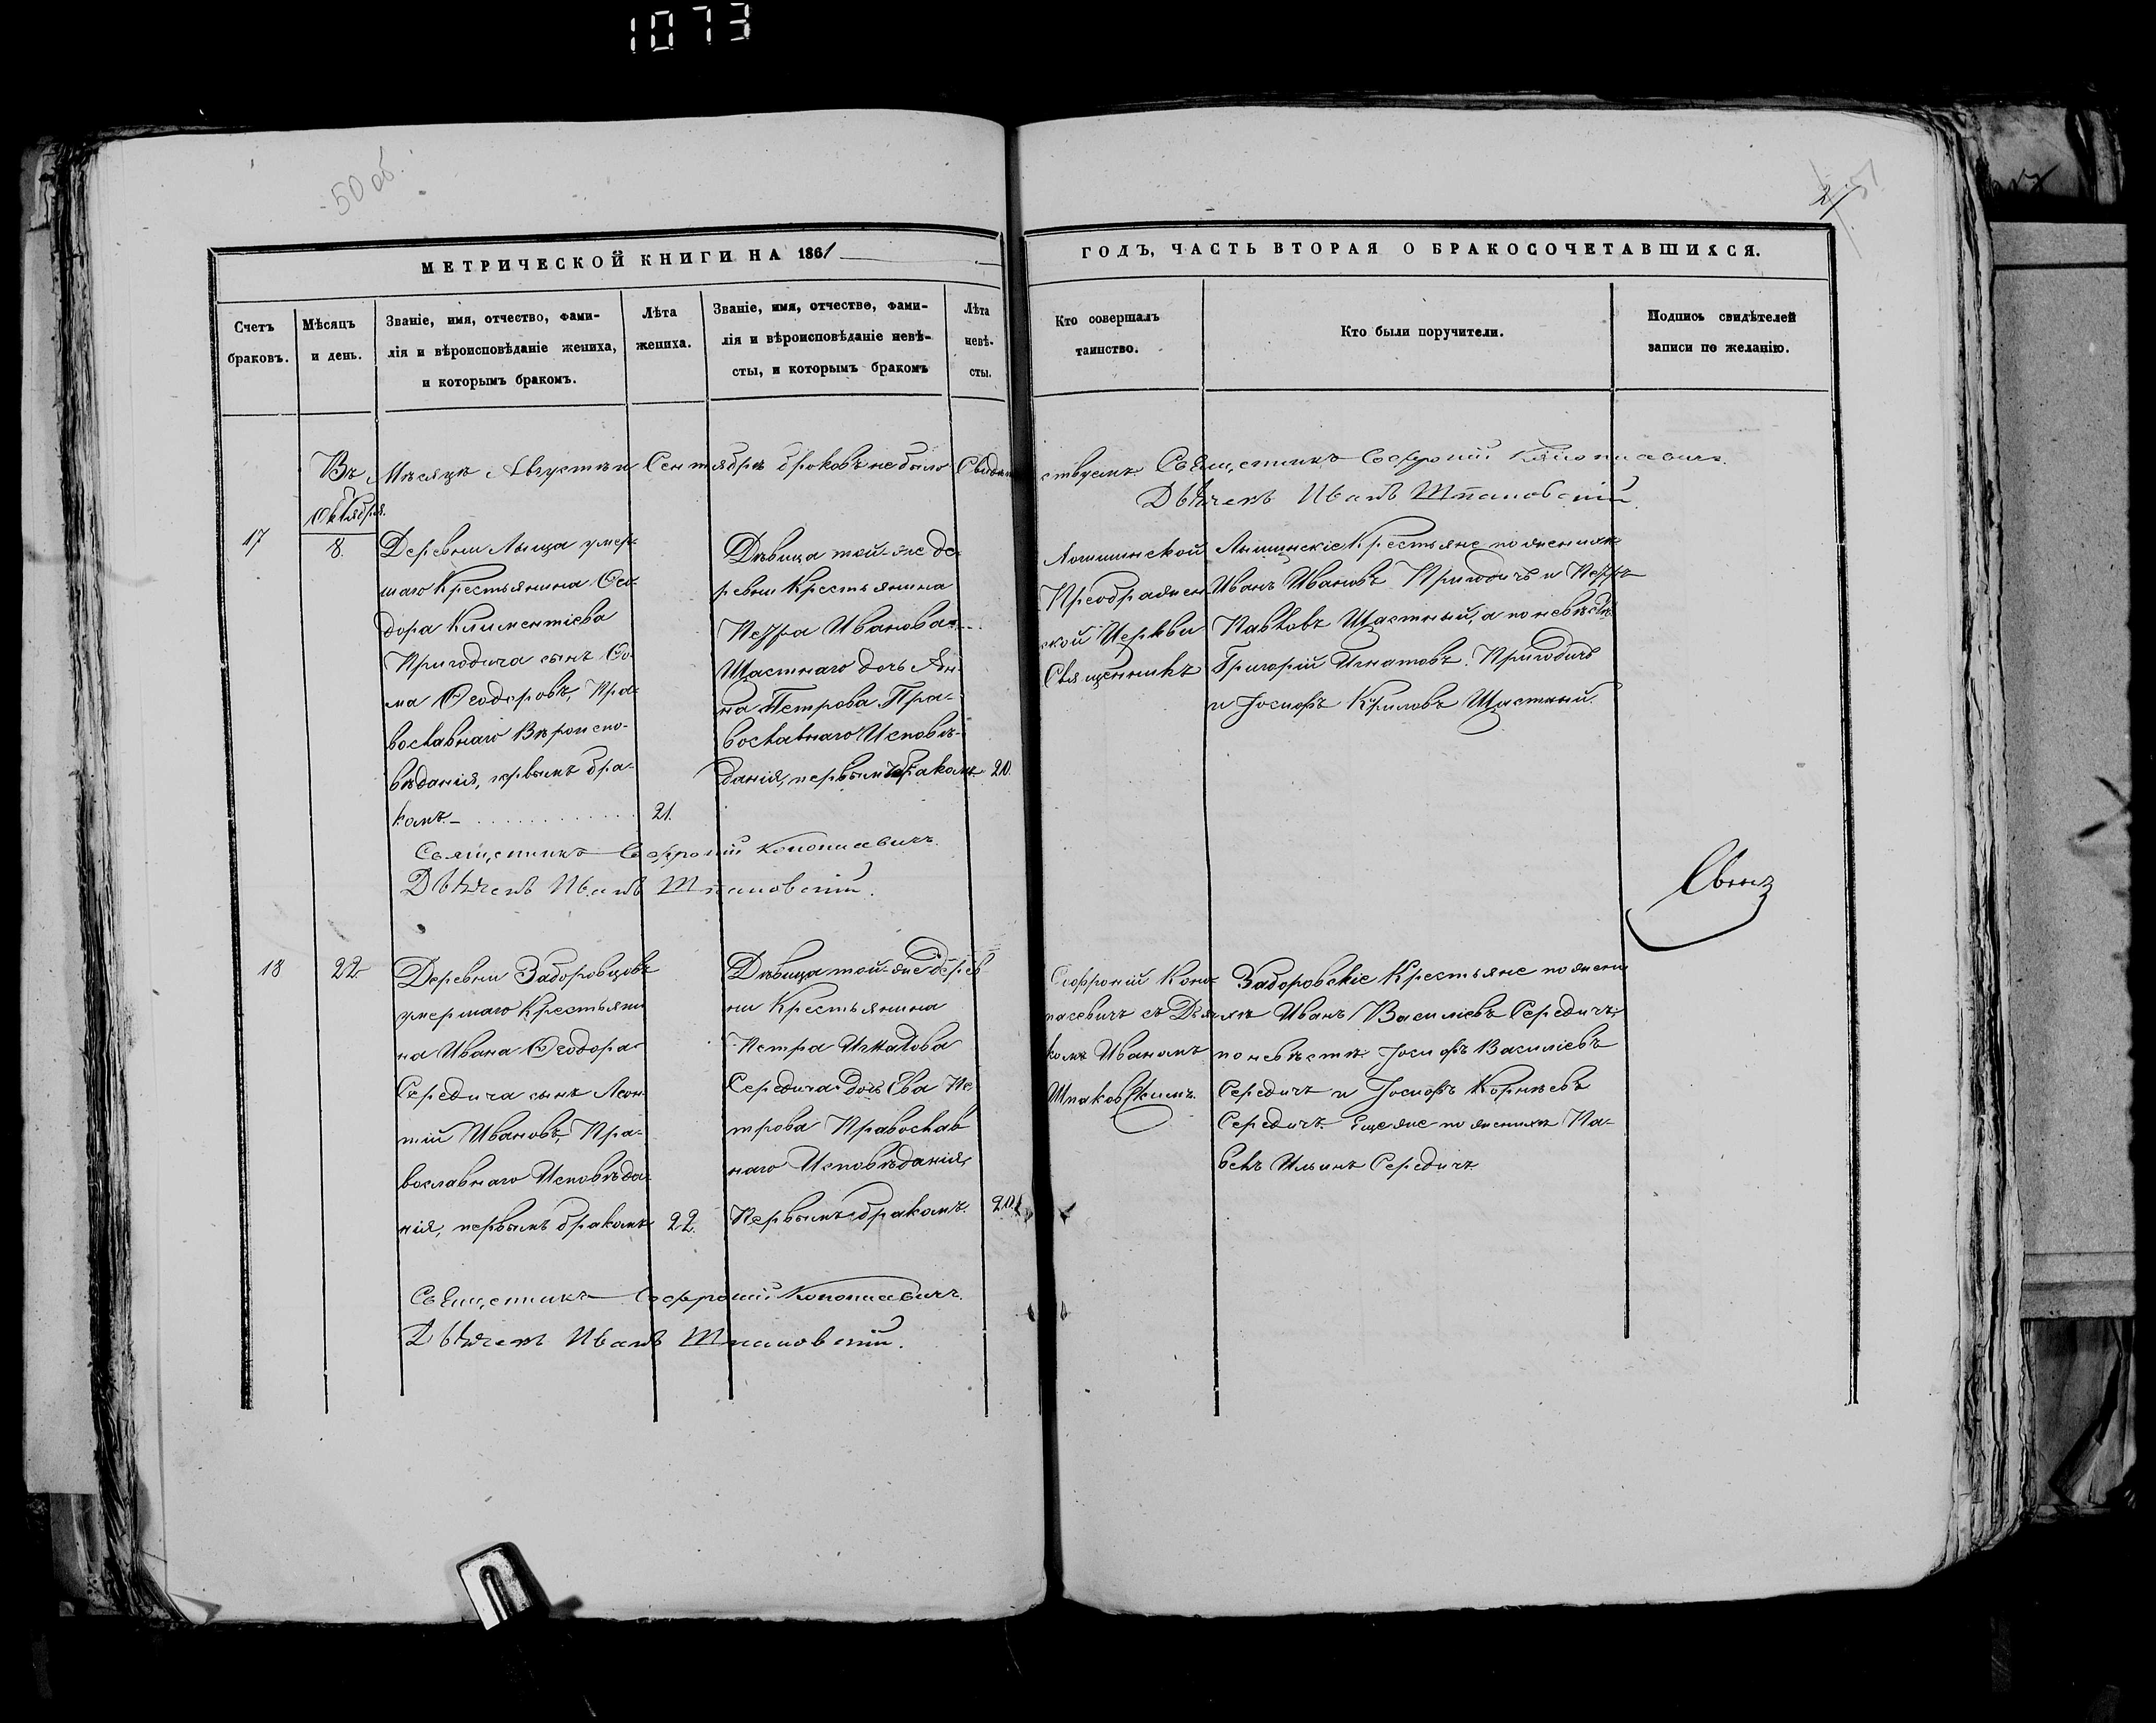 1073
50 об.
51
МЕТРИЧЕСКОЙ КНИГИ НА 1861
ГОДЪ, ЧАСТЬ ВТОРАЯ О БРАКОСОЧЕТАВШИХСЯ.
Счетъ
браковъ.
Мѣсяцъ
и день.
Званіе, имя, отчество, фами-
лія и вѣроисповѣданіе жениха,
и которымъ бракомъ.
Лѣта
жениха.
Званіе, имя, отчество, фами-
лія и вѣроисповѣданіе невѣ-
сты, и которымъ бракомъ
Лѣта
невѣ-
сты.
Кто совершалъ
таинство.
Кто были поручители.
Подпись свидѣтелей
записи по желанію.
Въ Мѣсяцѣ Августѣ и Сентябрѣ браковъ не было Свидѣтельствуемъ Священникъ Софроній
Дьячекъ Иванъ Шпаковскій.
Октября.
17
8.
Деревни умер-
шаго Крестьянина Ѳео-
дора Климентіева
Пригодича сынъ Ѳо-
ма Ѳеодоровъ, Пра-
вославнаго Вѣроиспо-
вѣданія, первымъ бра-
комъ.
21.
Дѣвица той-же де-
ревни Крестьянина
Петра Иванова
Щастнаго дочь Ан-
на Петрова Пра-
вославнаго Исповѣ-
данія, первымъ бракомъ
20.
Преображен-
ской Церкви
Священникъ
Крестьяне по женихѣ
Иванъ Ивановъ Пригодичъ и Петръ
Павловъ Щастный, а по невѣстѣ
Григорій Игнатовъ Пригодичъ
и Іосифъ Щастный.
Священникъ Софроній
Дьячекъ Иванъ Шпаковскій.
18
22
Деревни Задоровцовъ
умершаго Крестьяни
на Ивана Ѳеодора
Середича сынъ Леон-
тій Ивановъ, Пра-
вославнаго Исповѣда-
нія, первымъ бракомъ
22.
Дѣвица той-же дерев
ни Крестьянина
Петра Игнатова
Середича дочь Ева Пе
трова Православ
наго Исповѣданія,
Первымъ бракомъ.
20.
Софроній Коно-
пасевичъ съ Дьяч-
комъ Иваномъ
Шпаковскимъ.
Задоровскіе Крестьяне по жени
хѣ Иванъ Василіевъ Середичъ,
по невѣстѣ Іосифъ Василіевъ
Середичъ и Іосифъ Корнѣевъ
Середичъ. Еще же по женихѣ Па-
велъ Ильинъ Середичъ
Священникъ Софроній
Дьячекъ Иванъ Шпаковскій.